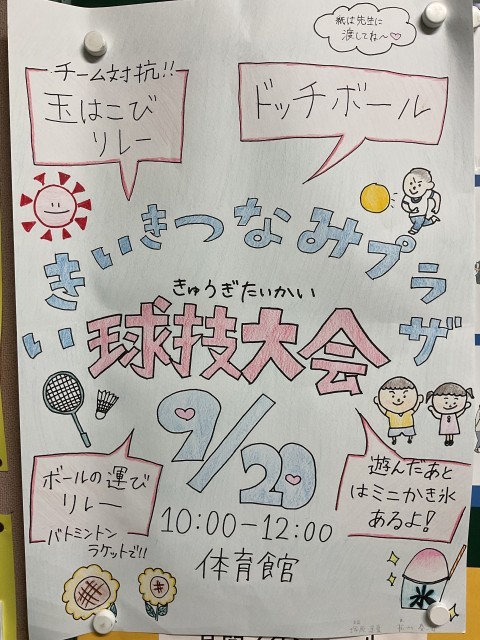 紙は先生に
渡してね〜♡
チーム対抗!!
玉はこび
リレー
ドッチボール
いきいきつなみプラザ
きゅうぎたいかい
球技大会
9/29
10:00-12:00
体育館
ボールの運び
リレー
バトミントン
ラケットで!!
遊んだあと
はミニかき氷
あるよ!
氷